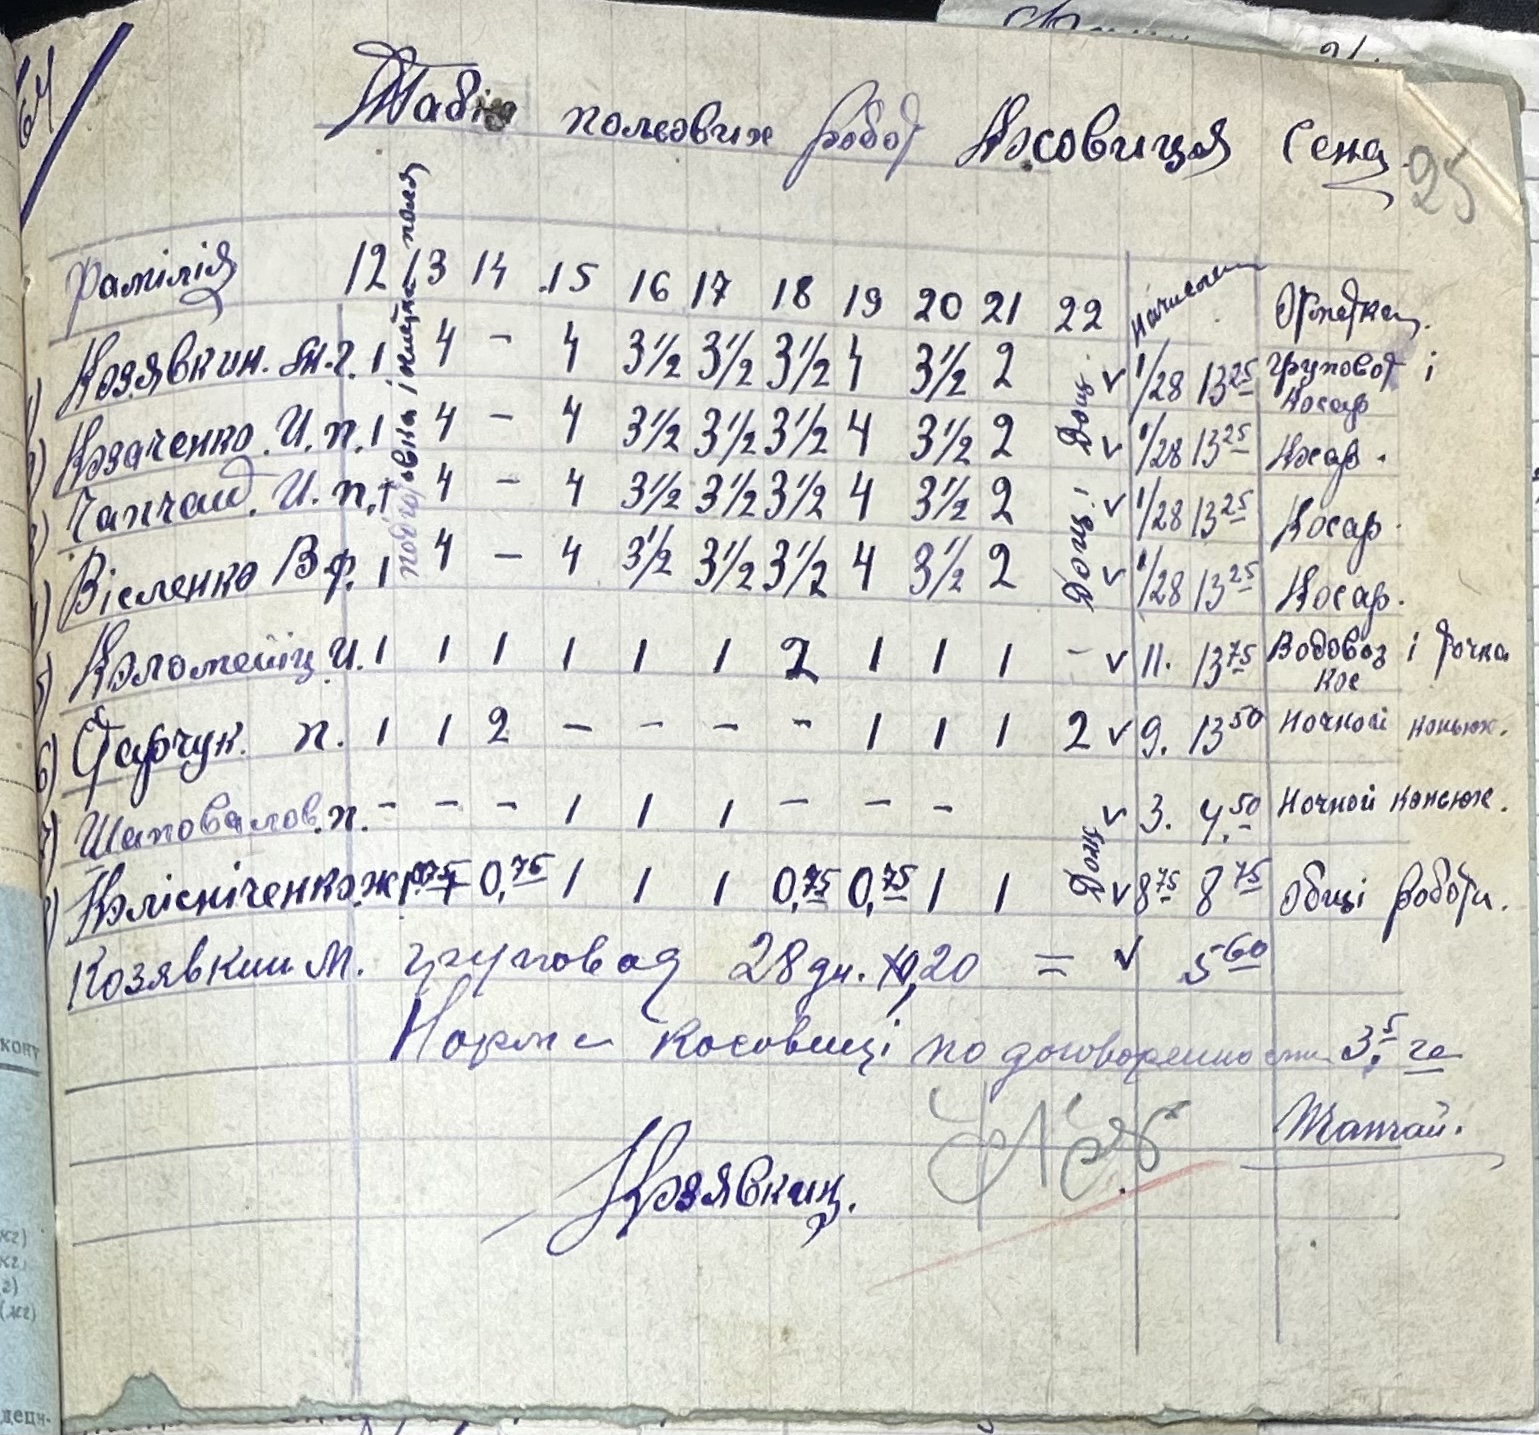 64
Табіл польових робот Косовиця Сена
95
Фамілія 12 13 14 15 16 17 18 19 20 21 22 Начислен Отметка.
1) Козявкин. М.Г. 1 4 – 4 3½ 3½ 3½ 4 3½ 2 ✓ 1/28 13 25 груповод і Косар
2) Козаченко. И. п. 1 4 – 4 3½ 3½ 3½ 4 3½ 2 ✓ 1/28 13 25 Косар.
3) И. п. 1 4 – 4 3½ 3½ 3½ 4 3½ 2 ✓ 1/28 13 25 Косар.
4) Вісленко В.ф. 1 4 – 4 3½ 3½ 3½ 4 3½ 2 ✓ 1/28 13 25 Косар.
5) Коломейіц И. 1 1 1 1 1 1 2 1 1 1 – ✓ 11. 13 75 Водовоз і точка кос
6) Старчук. п. 1 1 2 – – – – 1 1 1 2 ✓ 9. 13 50 Ночной конюх.
7) Шаповалов. п. – – – 1 1 1 – – – ✓ 3. 4,50 Ночной конюх.
8) Колісніченко ж 1 0,75 0,75 1 1 1 0,75 0,75 1 1 ✓ 8 75 8 75 Общі роботи.
Козявкин М. груповод 28 дн. х 0,20 = ✓ 5 60
Норма косовиці по договоренности 3,5 га
Козявкин.
поля
Дощ
Дощ
Дощ